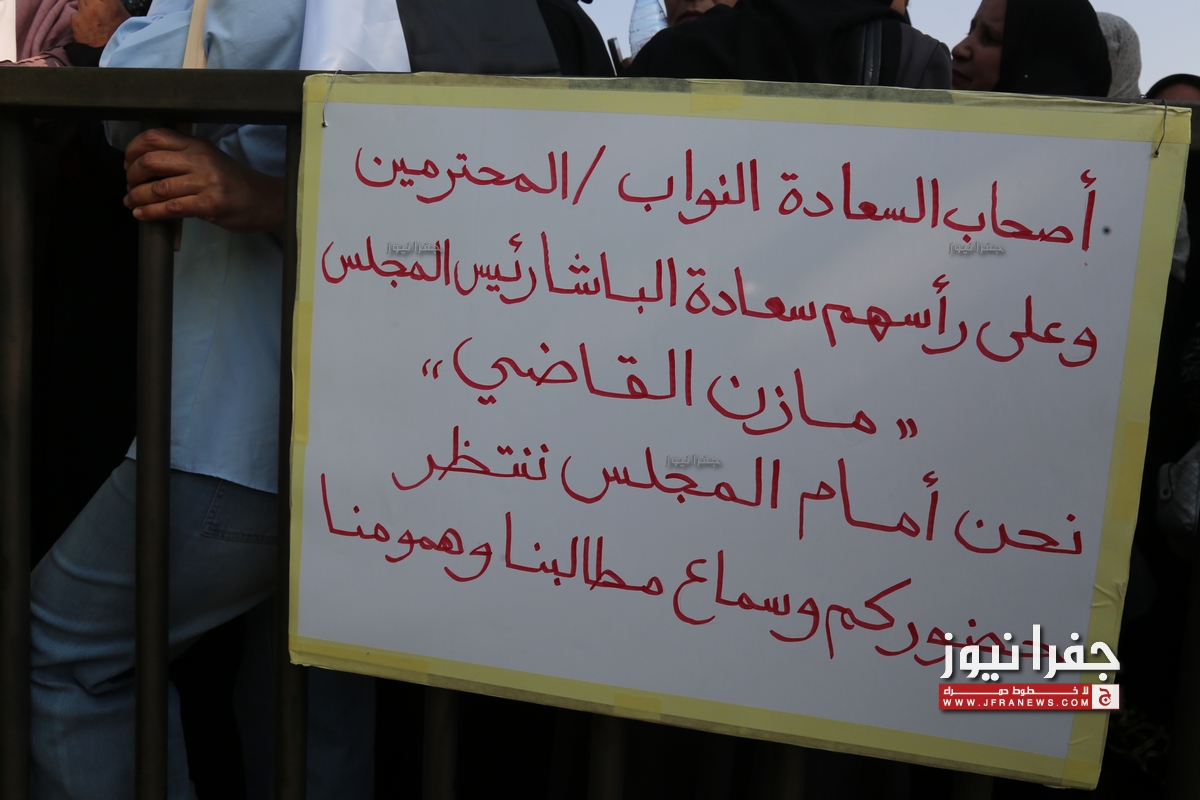 أصحاب السعادة النواب / المحترمين
وعلى رأسهم سعادة الباشا رئيس المجلس
" مازن القاضي "
نحن أمام المجلس ننتظر
حضوركم وسماع مطالبنا وهمومنا
جفرا نيوز
جفرا نيوز
جفرا نيوز
جفرا نيوز
لا خطوط حمراء
WWW.JFRANEWS.COM